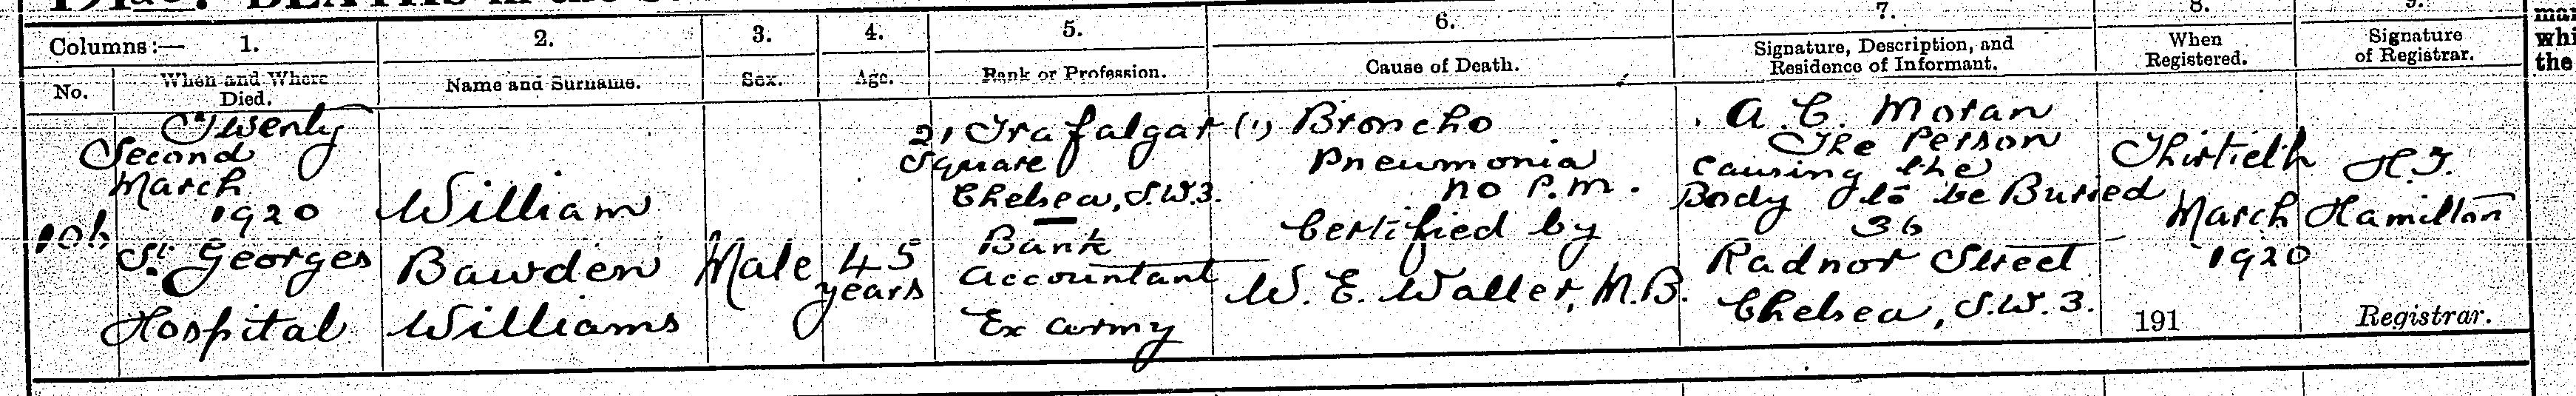 DEATHS in the
Columns:— 1. 2. 3. 4. 5. 6. 7. 8. 9.
No. When and Where Died. Name and Surname. Sex. Age. Rank or Profession. Cause of Death. Signature, Description, and Residence of Informant. When Registered. Signature of Registrar.
106
Twenty
Second
March
1920
St. Georges
Hospital
William
Bawden
Williams
Male
45
years
21 Trafalgar
Square
Chelsea, S.W.3.
—
Bank
Accountant
Ex army
(1) Broncho
Pneumonia
no P.M.
Certified by
W. E. Waller, M.B.
A. C. Moran
The Person
Causing the
Body to be Buried
36
Radnor Street
Chelsea, S.W.3.
Thirtieth
March
1920
191
H.J.
Hamilton
Registrar.
whi
the